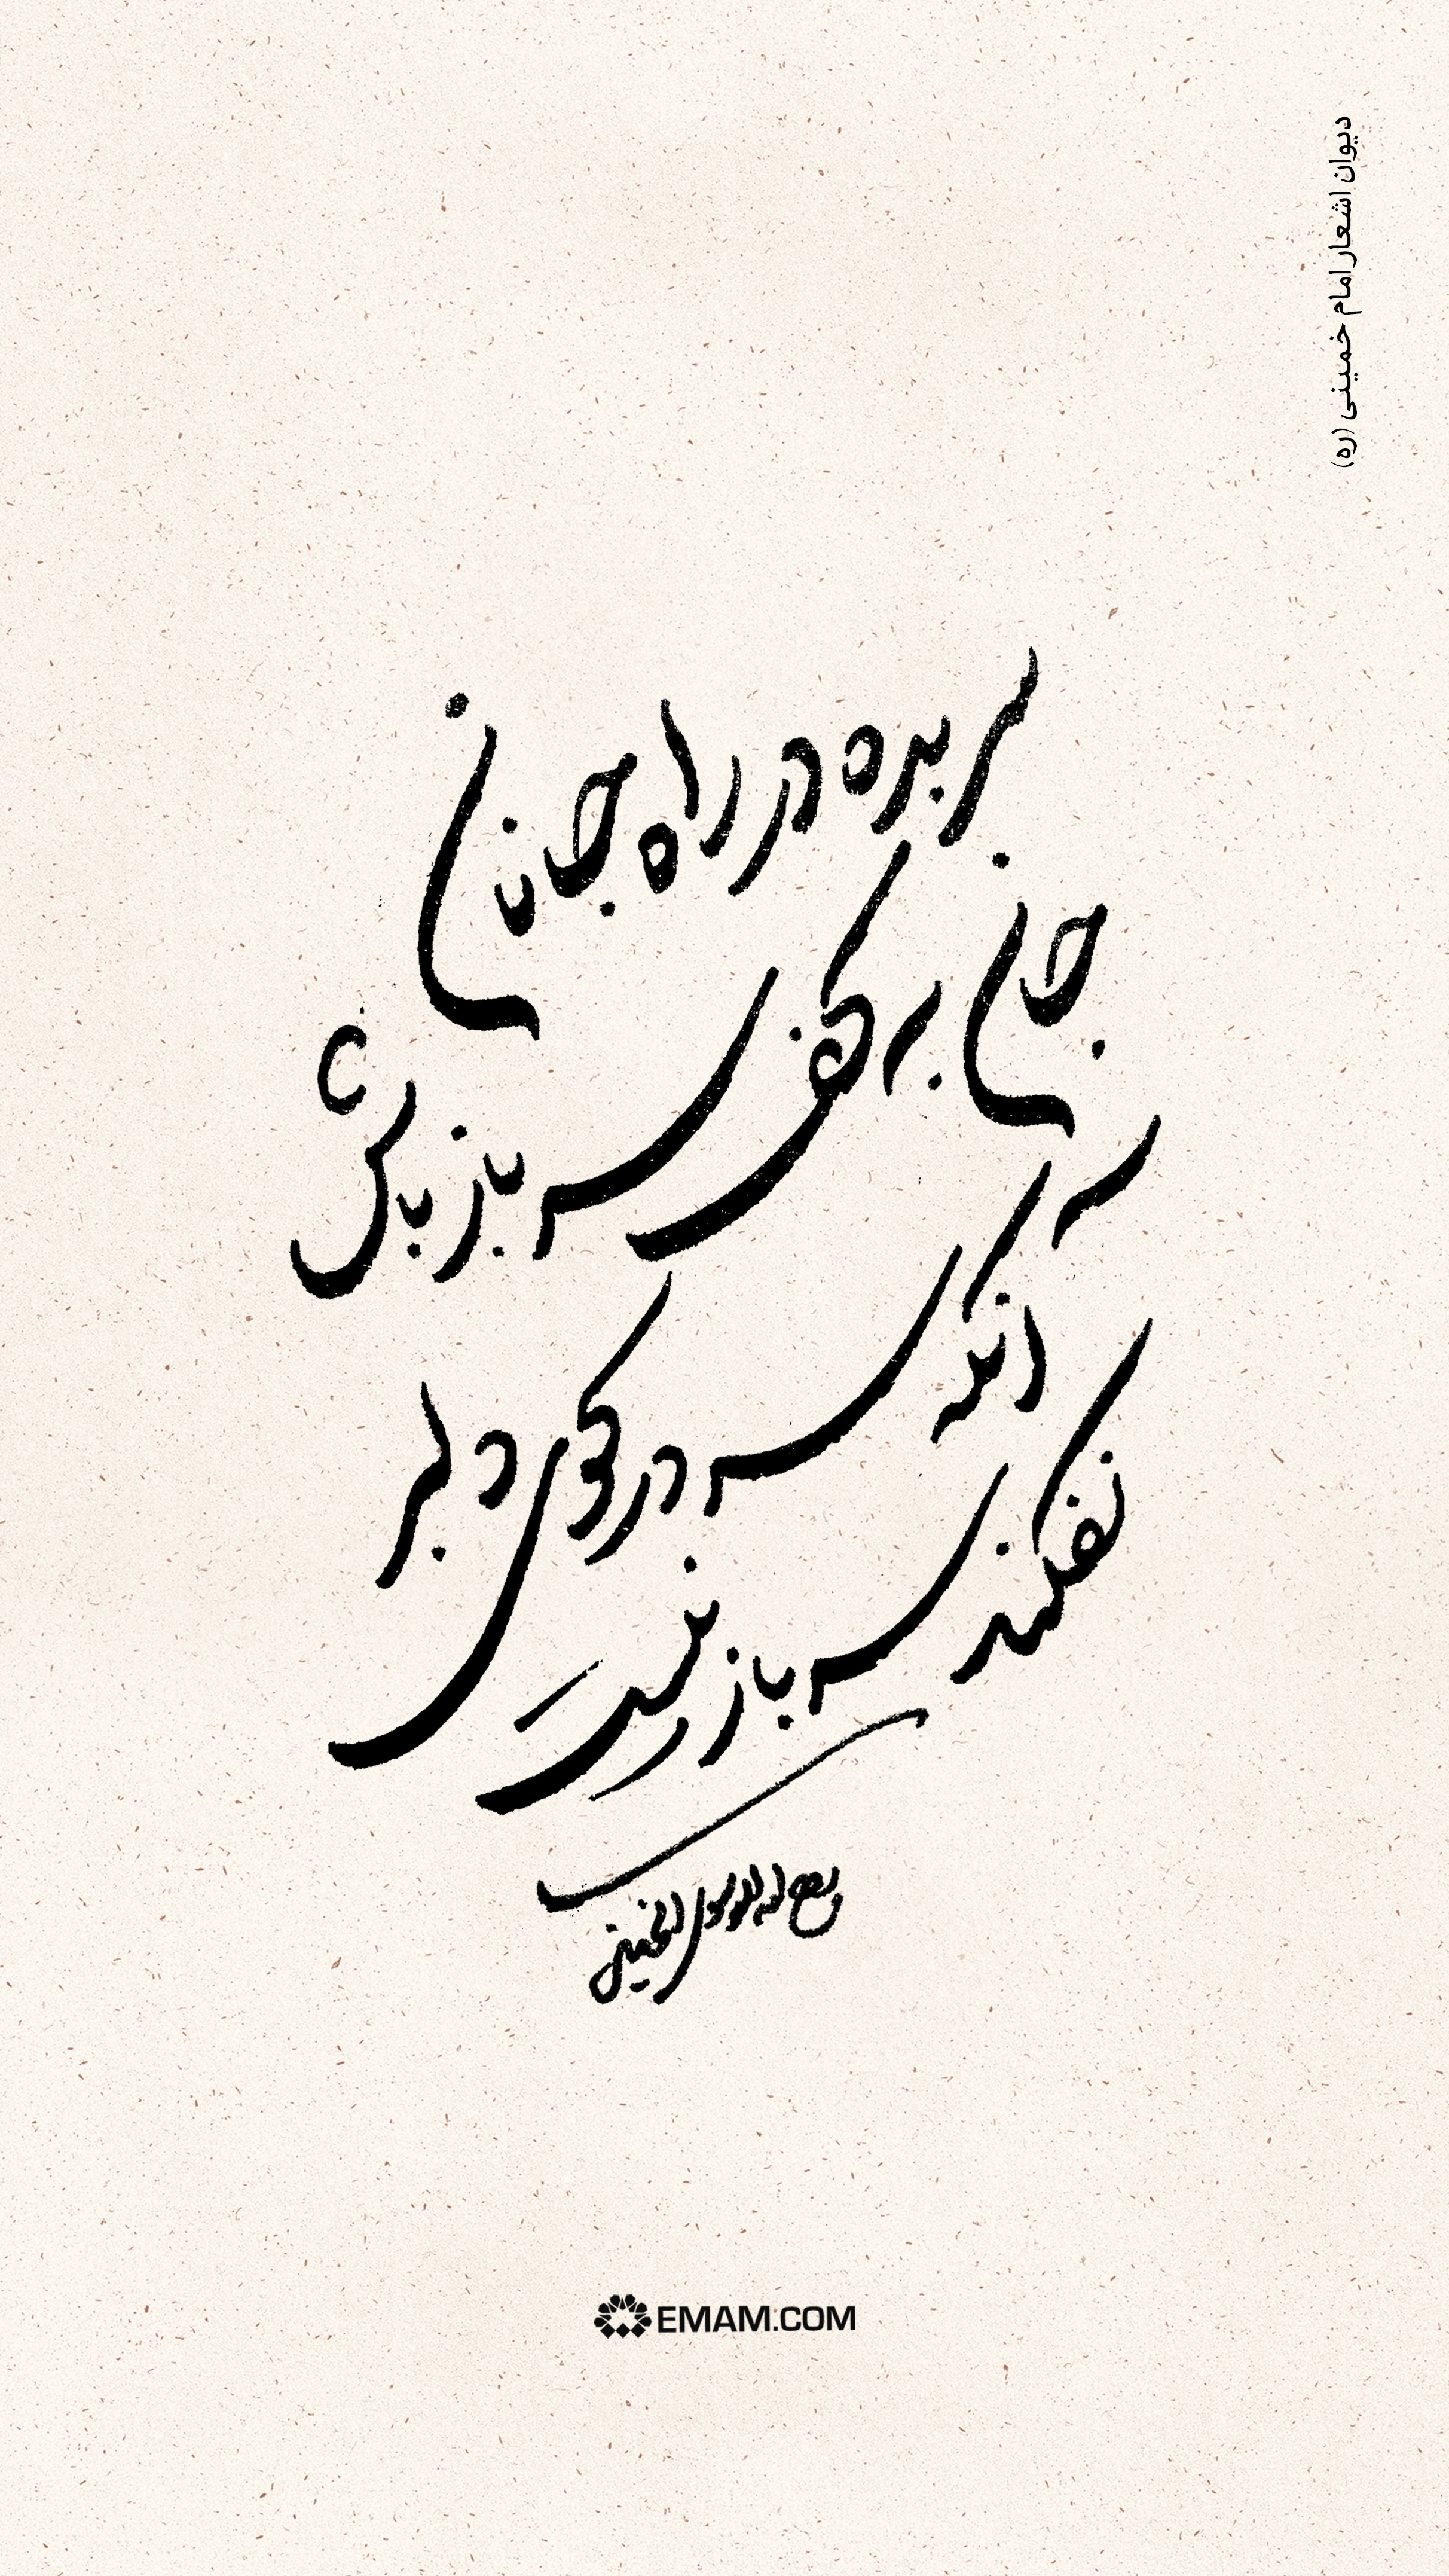 دیوان اشعار امام خمینی (ره)
سر بده در راه جانان
جان به کف سرباز باش
آنکه سر در کوی دلبر
نفکند سرباز نیست
روح الله الموسوی الخمینی
EMAM.COM